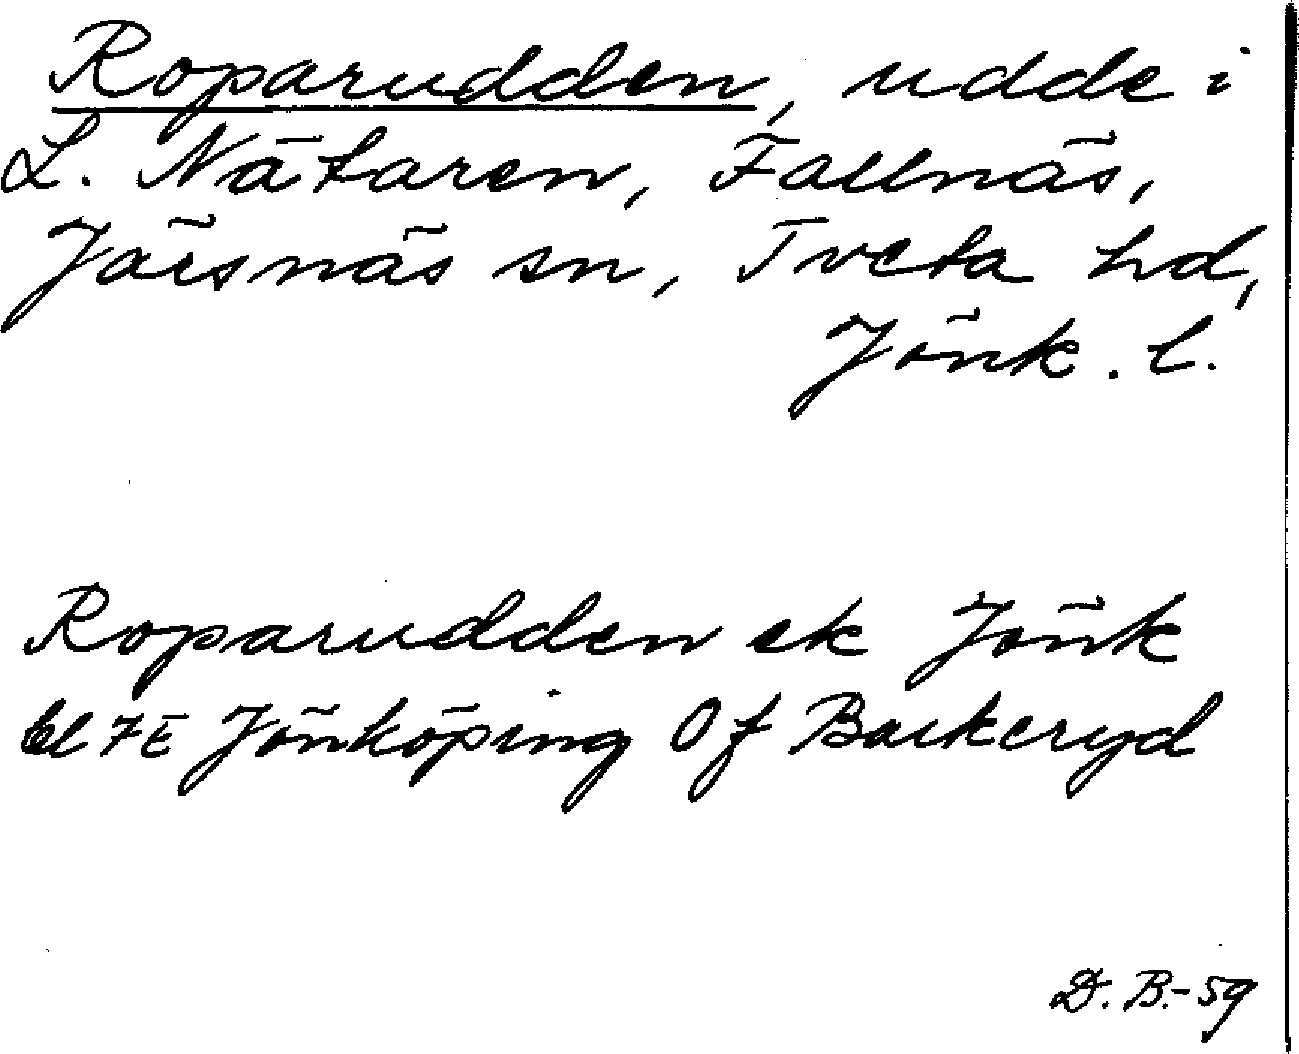 Roparudden, udde i
L. Nätaren, Fallnäs,
Järsnäs sn, Tveta hd,
Jönk. l.
Roparudden ek Jönk
bl 7E Jönköping Of Backeryd
D. B.-59